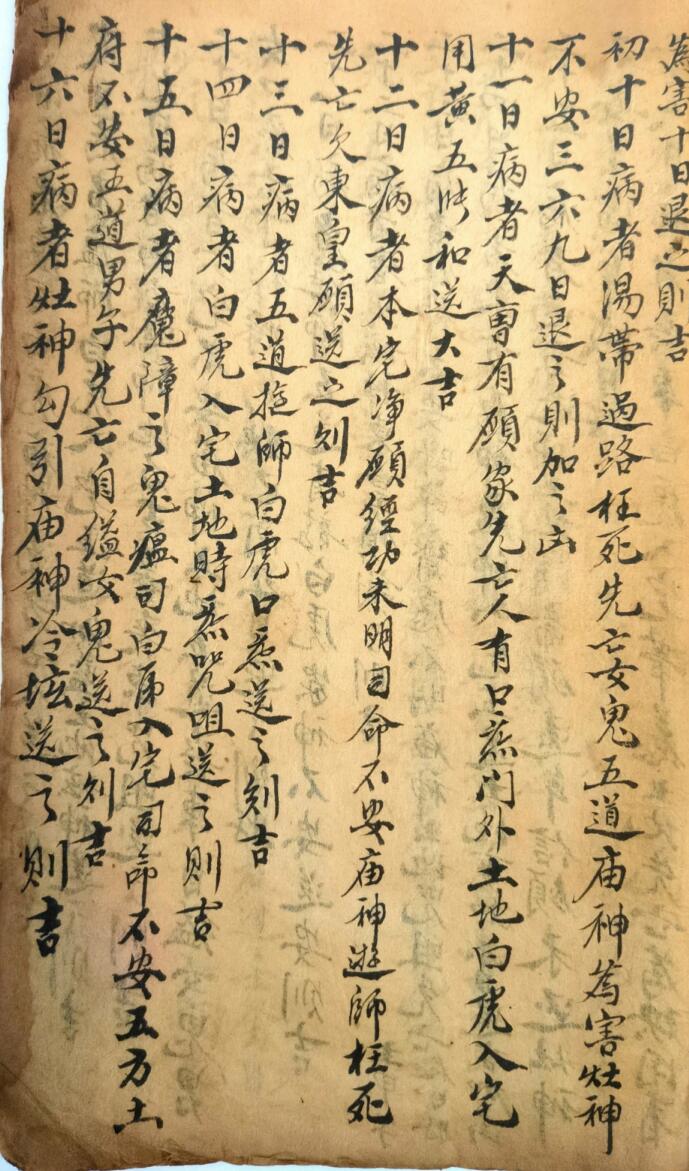 為害十日退之則吉
初十日病者湯帶過路枉死先亡女鬼五道庙神為害灶神
不安三六九日退之則加之凶
十一日病者天曹有願家先亡人有口愿门外土地白虎入宅
用黃五 和送大吉
十二日病者本宅净願經功未明司命不安庙神遊師枉死
先亡欠東皇願送之则吉
十三日病者五道遊師白虎口愿送之则吉
十四日病者白虎入宅土地時愿咒咀送之則吉
十五日病者魔障之鬼瘟司白虎入宅司命不安五方土
府不安五道男子先亡自縊女鬼送之则吉
十六日病者灶神勾引庙神冷坛送之則吉